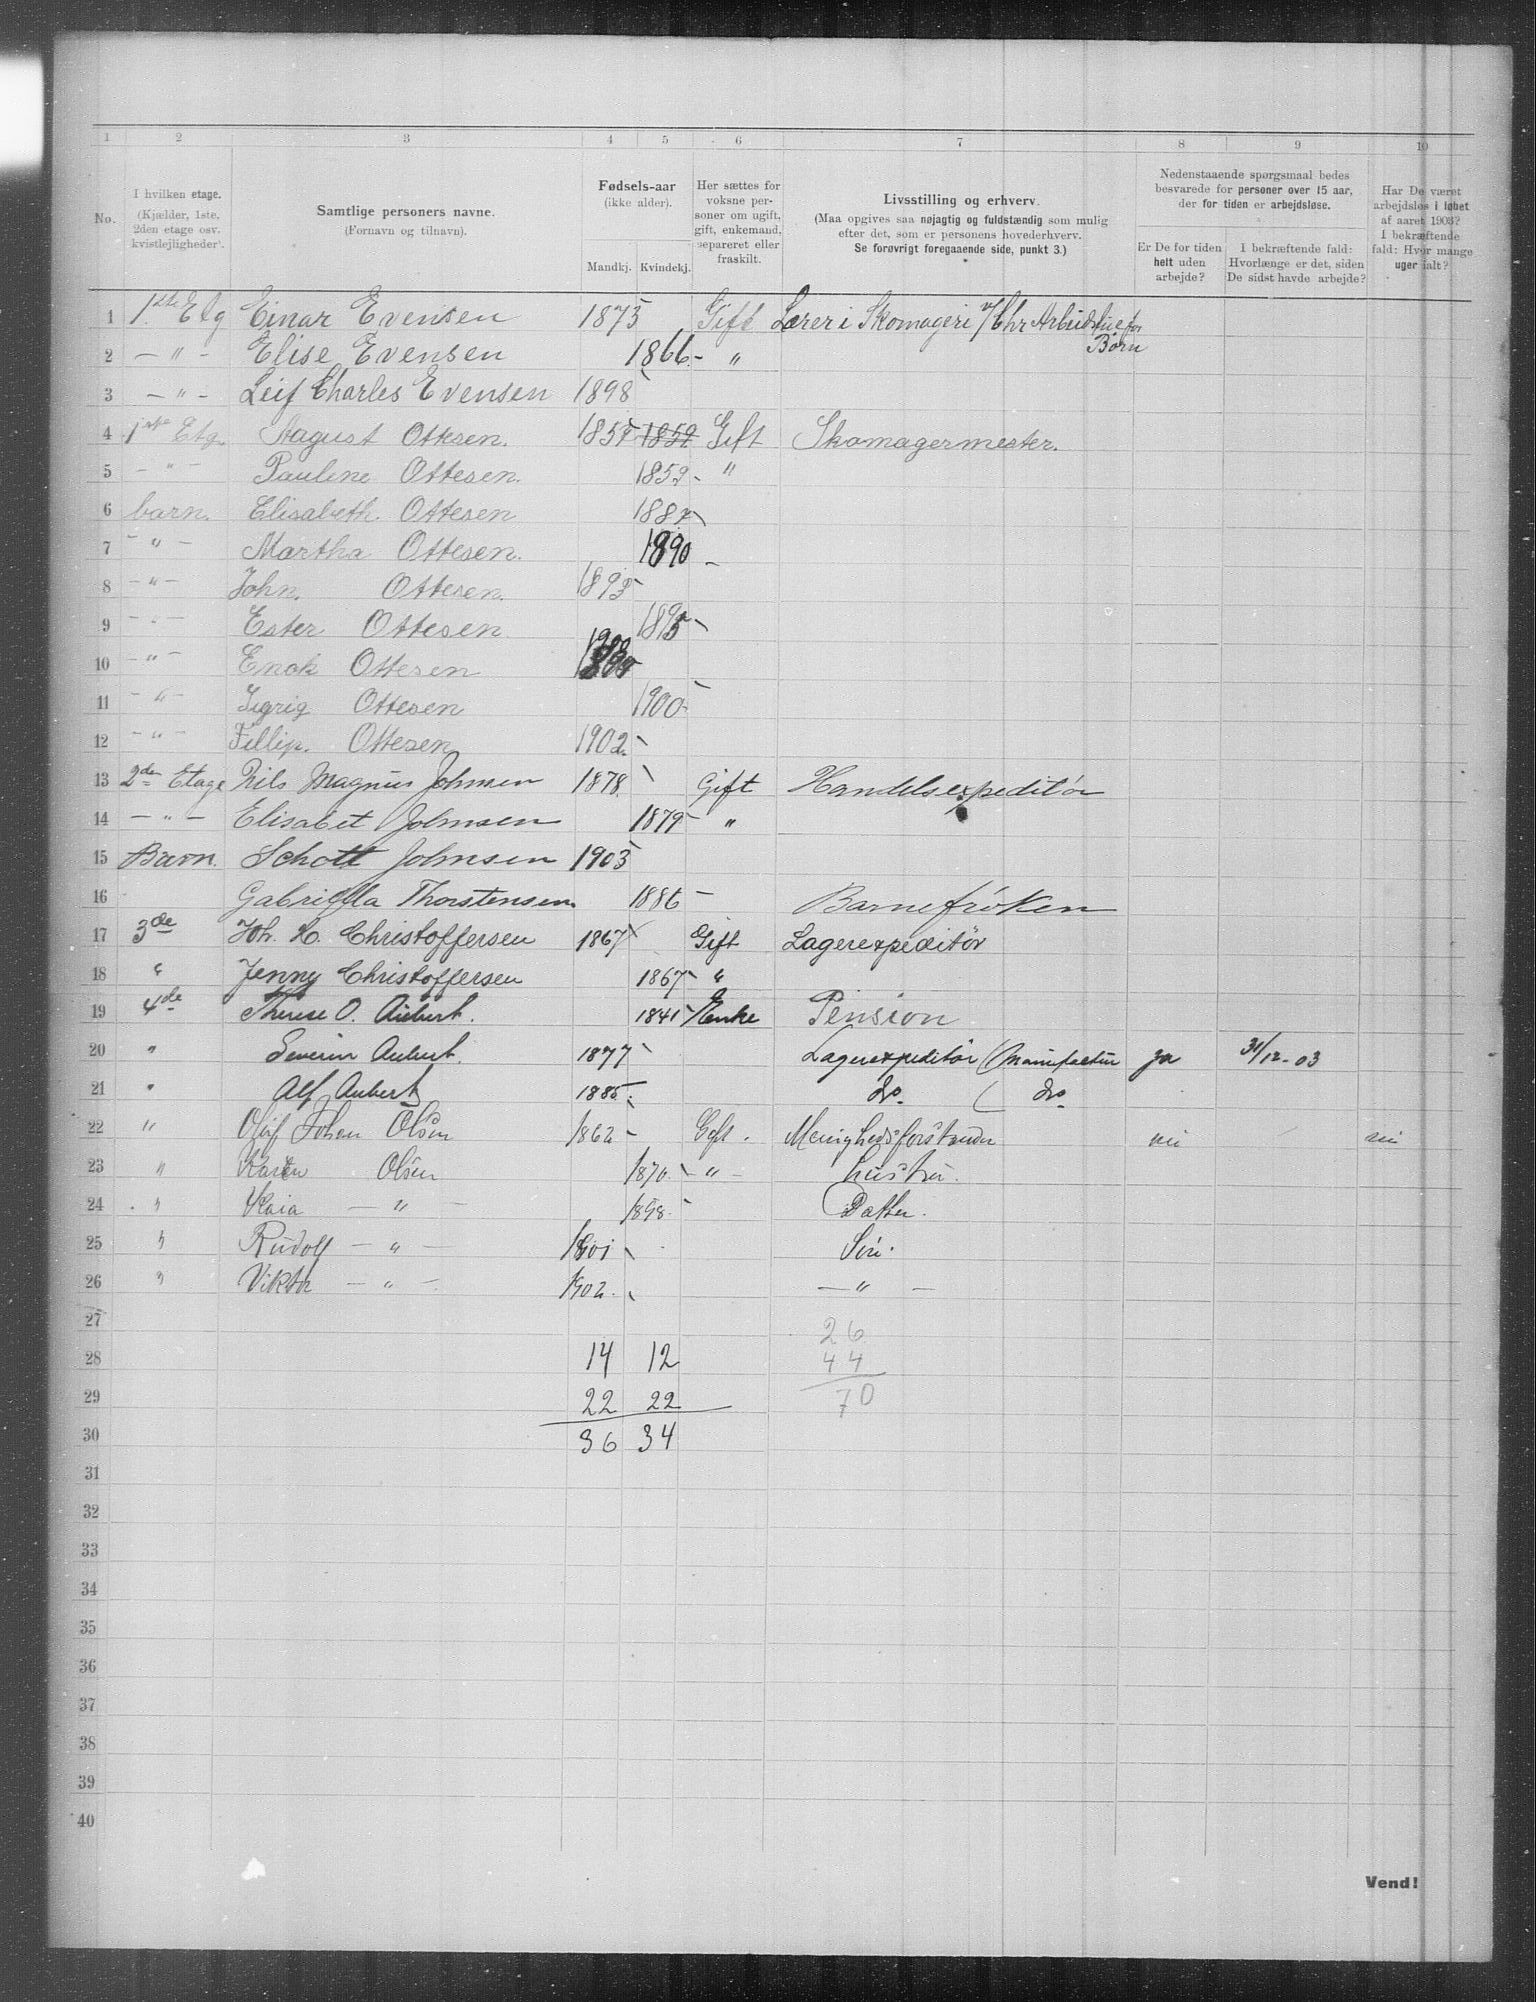 1 2 3 4 5 6 7 8 9 10
No.
I hvilken etage.
(Kjælder, 1ste,
2den etage osv.
kvistlejligheder).
Samtlige personers navne.
(Fornavn og tilnavn).
Fødsels-aar
(ikke alder).
Mandkj. Kvindekj.
Her sættes for
voksne per-
soner om ugift,
gift, enkemand,
separeret eller
fraskilt.
Livsstilling og erhverv.
(Maa opgives saa nøjagtig og fuldstændig som mulig
efter det, som er personens hovederhverv.
Se forøvrigt foregaaende side, punkt 3.)
Nedenstaaende spørgsmaal bedes
besvarede for personer over 15 aar,
der for tiden er arbejdsløse.
Er De for tiden
helt uden
arbejde?
I bekræftende fald:
Hvorlænge er det, siden
De sidst havde arbejde?
Har De været
arbejdsløs i løbet
af aaret 1903?
I bekræftende
fald: Hvor mange
uger ialt?
1 1ste Etg Einar Evensen 1873 Gift Lærer i Skomageri v/ Chr Arbeidstue for
Børn
2 — " — Elise Evensen 1866 "
3 — " — Leif Charles Evensen 1898
4 1ste Etg. August Ottesen. 1857 1852 Gift Skomagermester.
5 — " — Pauline Ottesen. 1852 "
6 barn. Elisabeth Ottesen 1887
7 — " — Martha Ottesen. 1890
8 — " — John. Ottesen. 1893
9 — " — Ester Ottesen 1895
10 — " — Enok Ottesen
11 — " — Sigrig Ottesen 1900
12 — " — Fillip. Ottesen 1902
13 2de Etage Nils Magnus Johnsen 1878. Gift Handelsexpeditør
14 — " — Elisabet Johnsen 1879 "
15 Barn. Schott Johnsen 1903
16 Gabriella Thorstensen 1886 Barnefrøken
17 3de Joh. H. Christoffersen 1867 Gift Lagerexpeditør
18 " Jenny Christoffersen 1867 "
19 4de Therese O. Aubert. 1841 Enke Pension
20 " Severin Aubert. 1877 Lagerexpeditør (Manufactur ja 31/12-03
21 " Alf Aubert 1885 do. ( do
22 " Olaf Johan Olsen 1862 Gift. Menighedsforstander nei nei
23 " Karen Olsen 1870 " — hustru.
24 " Kaia — " — 1898 Datter.
25 " Rudolf — " — 1901 Søn.
26 " Viktor — " — 1902. — " —
27 26
28 14 12 44
29 22 22 70
30 36 34
31
32
33
34
35
36
37
38
39
40
Vend!